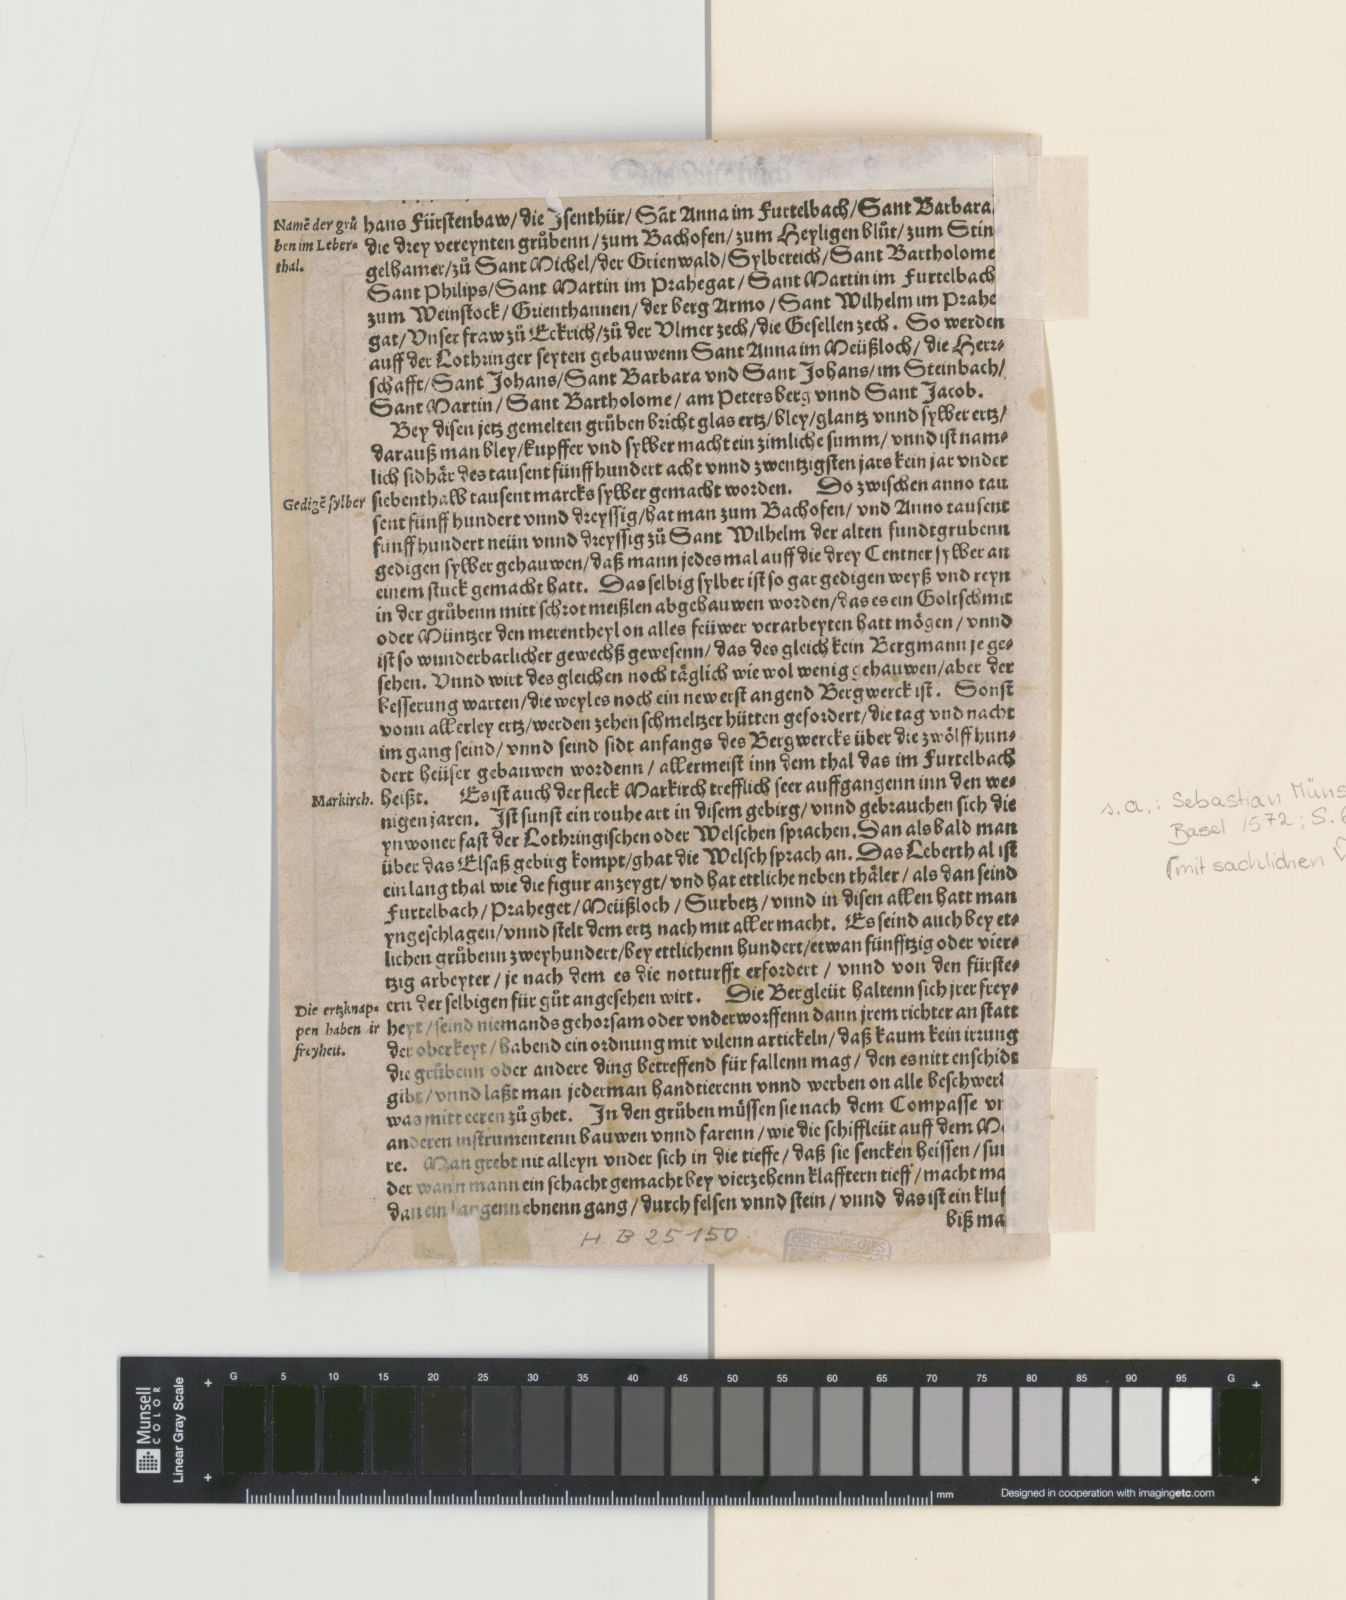 Namē der grů
ben im Leber-
thal.
hans Fürstenbaw/ die Isenthür/ Sāt Anna im Furtelbach/ Sant Barbara
die drey vereynten grůbenn/ zum Bachofen/ zum Heyligen blůt/ zum Stin
gelhamer/ zů Sant Michel/ der Grienwald/ Sylbereich/ Sant Bartholome
Sant Philips/ Sant Martin im Prahegat/ Sant Martin im Furtelbach
zum Weinstock/ Grienthannen/ der berg Armo/ Sant Wilhelm im Prahe
gat/ Vnser fraw zů Eckrich/ zů der Vlmer zech/ die Gesellen zech. So werden
auff der Lothringer seyten gebauwenn Sant Anna im Meüßloch/ die Herr-
schafft/ Sant Johans/ Sant Barbara vnd Sant Johans/ im Steinbach/
Sant Martin/ Sant Bartholome/ am Petersberg vnnd Sant Jacob.
Bey disen jetz gemelten grůben bricht glas ertz/ bley/ glantz vnnd sylber ertz/
darauß man bley/ kupffer vnd sylber macht ein zimliche summ/ vnnd ist nam-
lich sidhär des tausent fünff hundert acht vnnd zwentzigsten jars kein jar vnder
Gedigē sylber
siebenthalb tausent marcks sylber gemacht worden. Do zwischen anno tau
sent fünff hundert vnnd dreyssig/ hat man zum Bachofen/ vnd Anno tausent
fünff hundert neün vnnd dreyssig zů Sant Wilhelm der alten fundtgrubenn
gedigen sylber gehauwen/ daß mann jedes mal auff die drey Centner sylber an
einem stuck gemacht hatt. Das selbig sylber ist so gar gedigen weyß vnd reyn
in der grůbenn mitt schrotmeißlen abgehauwen worden/ das es ein Goltschmit
oder Müntzer den merentheyl on alles feüwer verarbeyten hatt mögen/ vnnd
ist so wunderbarlicher gewechß gewesenn/ das des gleich kein Bergmann je ge-
sehen. Vnnd wirt des gleichen noch täglich wie wol wenig gehauwen/ aber der
besserung warten/ die weyl es noch ein new erst angend Bergwerck ist. Sonst
vonn allerley ertz/ werden zehen schmeltzer hütten gefordert/ die tag vnd nacht
im gang seind/ vnnd seind sidt anfangs des Bergwercks über die zwölff hun-
dert heüser gebauwen wordenn/ allermeist inn dem thal das im Furtelbach
Markirch.
heißt. Es ist auch der fleck Markirch trefflich seer auffgangenn inn den we-
nigen jaren. Ist sunst ein rouhe art in disem gebirg/ vnnd gebrauchen sich die
ynwoner fast der Lothringischen oder Welschen sprachen. Dan als bald man
über das Elsaß gebirg kompt/ ghat die Welsch sprach an. Das Leberthal ist
ein lang thal wie die figur anzeygt/ vnd hat ettliche neben thäler/ als dan seind
Furtelbach/ Praheget/ Meüßloch/ Surbetz/ vnnd in disen allen hatt man
yngeschlagen/ vnnd stelt dem ertz nach mit aller macht. Es seind auch bey et-
lichen grůbenn zweyhundert/ bey ettlichenn hundert/ etwan fünfftzig oder vier-
tzig arbeyter/ je nach dem es die notturfft erfordert/ vnnd von den fürste-
Die ertzknap-
pen haben ir
freyheit.
ern der selbigen für gůt angesehen wirt. Die Bergleüt haltenn sich jrer frey-
heyt/ seind niemands gehorsam oder vnderworffenn dann jrem richter an statt
der oberkeyt/ habend ein ordnung mit vilenn artickeln/ daß kaum kein irrung
die grůbenn oder andere ding betreffend für fallenn mag/ den es nitt enschidt
gibt/ vnnd laßt man jederman handtierenn vnnd werben on alle beschwerd
was mitt eeren zů ghet. In den grůben müssen sie nach dem Compasse vn
anderen instrumentenn bauwen vnnd farenn/ wie die schiffleüt auff dem Me
re. Man grebt nit alleyn vnder sich in die tieffe/ daß sie sencken heissen/ sun
der wann mann ein schacht gemacht bey vierzehenn klafftern tieff/ macht ma
dan ein langenn ebnenn gang/ durch felsen vnnd stein/ vnnd das ist ein kluf
biß ma
H B 25150
GERMANISCHES
s. a.: Sebastian Müns
Basel 1572; S. 6
(mit sachlichen
Munsell
COLOR
Linear Gray Scale
G 5 10 15 20 25 30 35 40 45 50 55 60 65 70 75 80 85 90 95 G
mm
Designed in cooperation with imagingetc.com